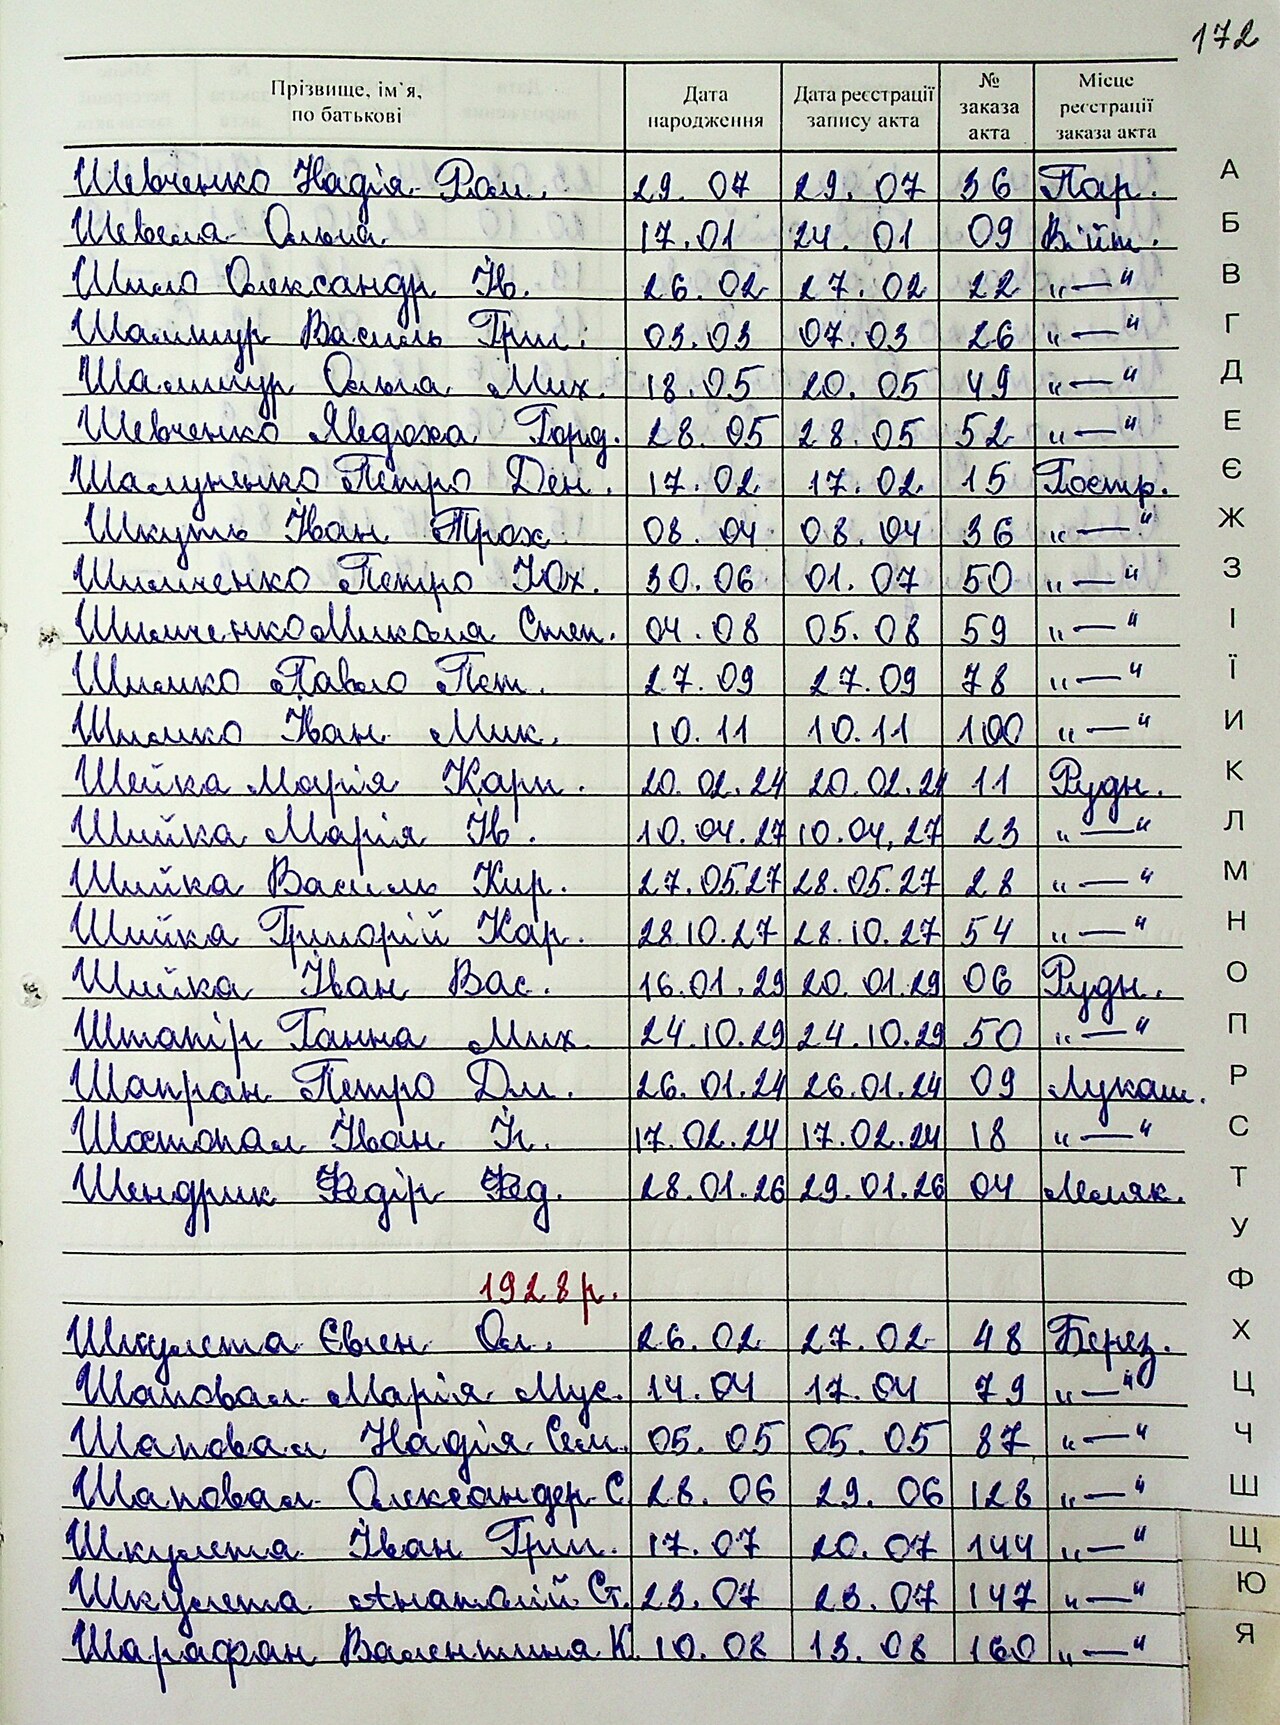 172
Прізвище, ім`я, по батькові Дата народження Дата реєстрації запису акта № заказа акта Місце реєстрації заказа акта
Шевченко Надія Ром. 29. 07 29. 07 36 Пар.
Шевела Ольга 17.01 24. 01 09 Війт.
Шило Олександр Ів. 26. 02 27. 02 22 „—“
Василь Григ. 03. 03 07. 03 26 „—“
Ольга Мих. 18. 05 20. 05 49 „—“
Шевченко Явдоха Горд. 28. 05 28. 05 52 „—“
Петро Ден. 17. 02 17. 02. 15 Гостр.
Шкуть Іван Трох. 08. 04 08. 04 36 „—“
Шимченко Петро Юх. 30. 06 01. 07 50 „—“
Шимченко Микола Степ. 04. 08 05. 08 59 „—“
Шимко Павло Пет. 27. 09 27. 09 78 „—“
Шимко Іван Мик. 10. 11 10. 11 100 „—“
Шейка Марія Карп. 20. 02. 24 20. 02. 24 11 Рудн.
Шийка Марія Ів. 10. 04. 27 10. 04, 27 23 „—“
Шийка Василь Кир. 27. 05.27 28. 05. 27 28 „—“
Шийка Григорій Кар. 28.10. 27 28. 10. 27 54 „—“
Шийка Іван Вас. 16. 01. 29 20. 01. 29 06 Рудн.
Штапір Ганна Мих. 24. 10. 29 24. 10. 29 50 „—“
Шапран Петро Дм. 26. 01. 24 26. 01. 24 09 Лукаш.
Шостопал Іван 17. 02. 24 17. 02. 24 18 „—“
Шендрик Федір Фед. 28. 01. 26 29. 01. 26 04
1928 р.
Шкулета Євген Ол. 26. 02 27. 02 48 Берез.
Шаповал Марія Мус. 14. 04 17. 04 79 „—“
Шаповал Надія Сем. 05. 05 05. 05 87 „—“
Шаповал Олександер С. 28. 06 29. 06 128 „—“
Шкулета Іван Григ. 17. 07 20. 07 144 „—“
Шкулета Анатолій Ст. 23. 07 23. 07 147 „—“
Шарафан Валентина К. 10. 08 13. 08 160 „—“
А
Б
В
Г
Д
Е
Є
Ж
З
І
Ї
И
К
Л
М
Н
О
П
Р
С
Т
У
Ф
Х
Ц
Ч
Ш
Щ
Ю
Я